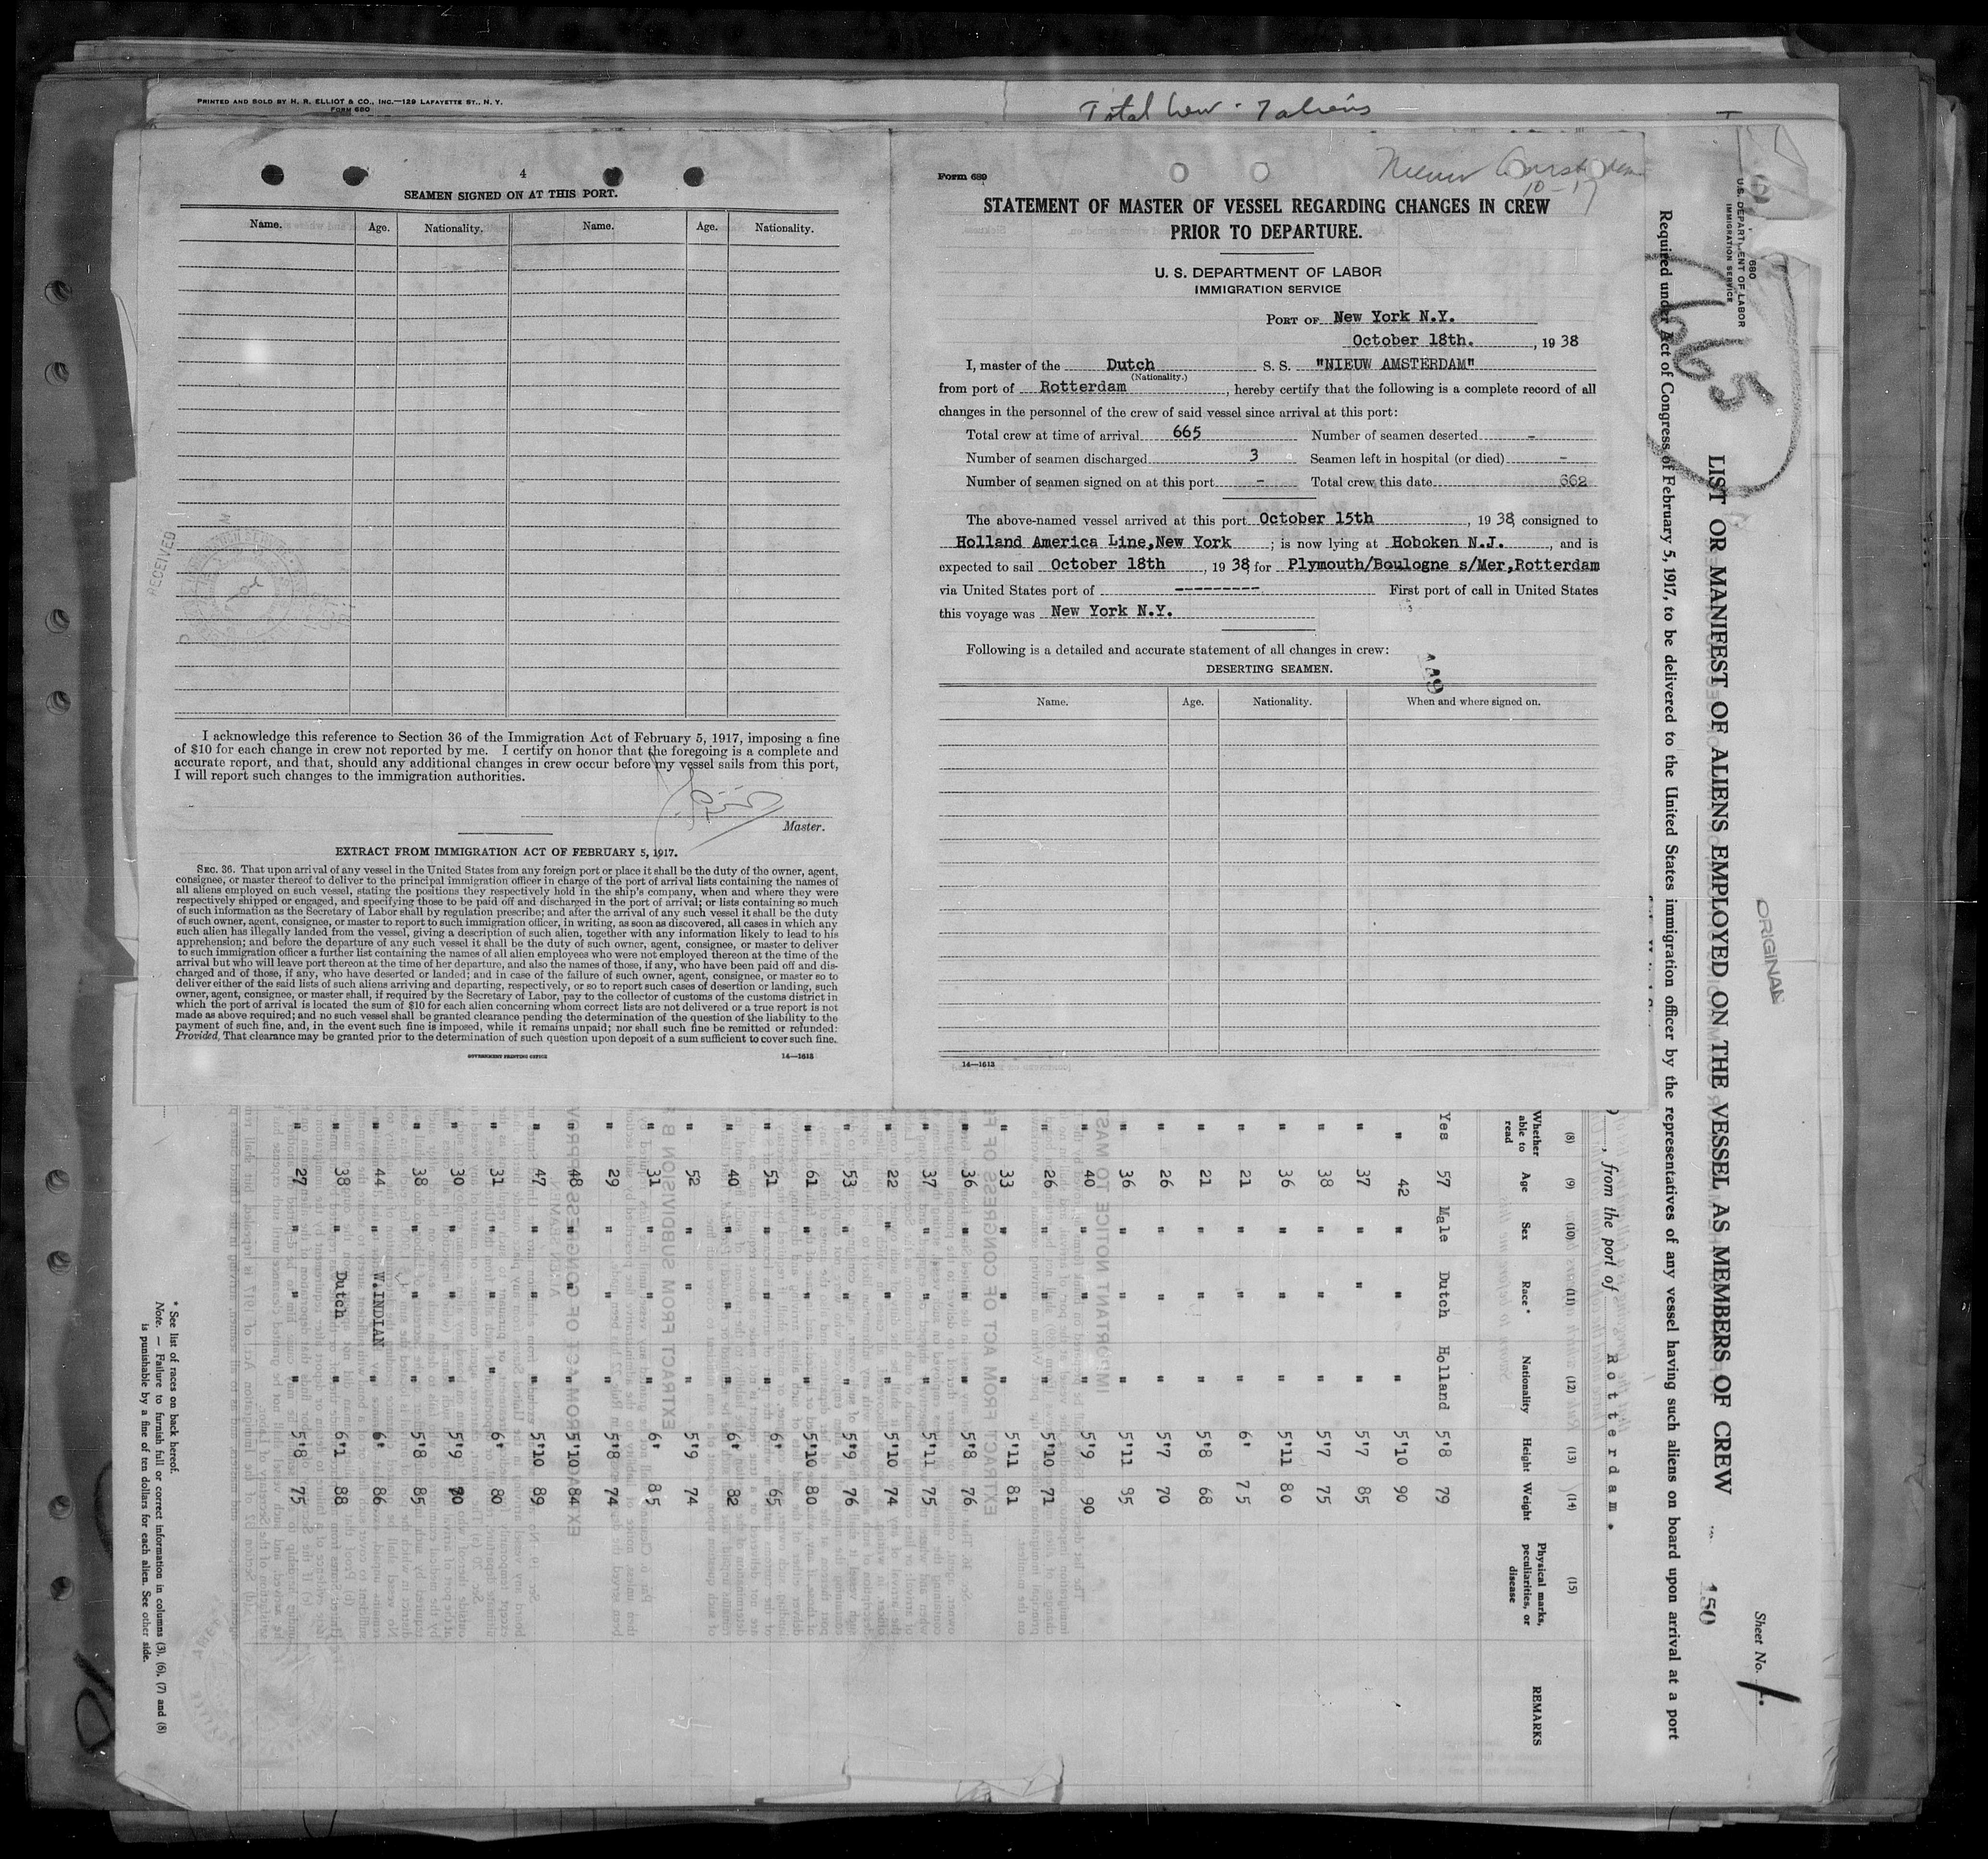 PRINTED AND SOLD BY H. R. ELLIOT & CO., INC.—129 LAFAYETTE ST., N. Y.
FORM 680
Total Crew - 7 aliens
4
SEAMEN SIGNED ON AT THIS PORT.
Name. Age. Nationality. Name. Age. Nationality.
RECEIVED
I acknowledge this reference to Section 36 of the Immigration Act of February 5, 1917, imposing a fine
of $10 for each change in crew not reported by me. I certify on honor that the foregoing is a complete and
accurate report, and that, should any additional changes in crew occur before my vessel sails from this port,
I will report such changes to the immigration authorities.
Master.
EXTRACT FROM IMMIGRATION ACT OF FEBRUARY 5, 1917.
SEC. 36. That upon arrival of any vessel in the United States from any foreign port or place it shall be the duty of the owner, agent,
consignee, or master thereof to deliver to the principal immigration officer in charge of the port of arrival lists containing the names of
all aliens employed on such vessel, stating the positions they respectively hold in the ship's company, when and where they were
respectively shipped or engaged, and specifying those to be paid off and discharged in the port of arrival; or lists containing so much
of such information as the Secretary of Labor shall by regulation prescribe; and after the arrival of any such vessel it shall be the duty
of such owner, agent, consignee, or master to report to such immigration officer, in writing, as soon as discovered, all cases in which any
such alien has illegally landed from the vessel, giving a description of such alien, together with any information likely to lead to his
apprehension; and before the departure of any such vessel it shall be the duty of such owner, agent, consignee, or master to deliver
to such immigration officer a further list containing the names of all alien employees who were not employed thereon at the time of the
arrival but who will leave port thereon at the time of her departure, and also the names of those, if any, who have been paid off and dis-
charged and of those, if any, who have deserted or landed; and in case of the failure of such owner, agent, consignee, or master so to
deliver either of the said lists of such aliens arriving and departing, respectively, or so to report such cases of desertion or landing, such
owner, agent, consignee, or master shall, if required by the Secretary of Labor, pay to the collector of customs of the customs district in
which the port of arrival is located the sum of $10 for each alien concerning whom correct lists are not delivered or a true report is not
made as above required; and no such vessel shall be granted clearance pending the determination of the question of the liability to the
payment of such fine, and, in the event such fine is imposed, while it remains unpaid; nor shall such fine be remitted or refunded:
Provided, That clearance may be granted prior to the determination of such question upon deposit of a sum sufficient to cover such fine.
GOVERNMENT PRINTING OFFICE 14—1613
Form 689
Nieuw Amsterdam
10-17
STATEMENT OF MASTER OF VESSEL REGARDING CHANGES IN CREW
PRIOR TO DEPARTURE.
U. S. DEPARTMENT OF LABOR
IMMIGRATION SERVICE
PORT OF New York N.Y.
October 18th. , 1938
I, master of the Dutch S. S. "NIEUW AMSTERDAM"
(Nationality.)
from port of Rotterdam , hereby certify that the following is a complete record of all
changes in the personnel of the crew of said vessel since arrival at this port:
Total crew at time of arrival 665 Number of seamen deserted -
Number of seamen discharged 3 Seamen left in hospital (or died) -
Number of seamen signed on at this port - Total crew this date 662
The above-named vessel arrived at this port October 15th , 1938, consigned to
Holland America Line,New York ; is now lying at Hoboken N.J. , and is
expected to sail October 18th , 1938, for Plymouth/Boulogne s/Mer,Rotterdam
via United States port of --------- First port of call in United States
this voyage was New York N.Y.
Following is a detailed and accurate statement of all changes in crew:
149
DESERTING SEAMEN.
Name. Age. Nationality. When and where signed on.
14—1613
680
U.S. DEPARTMENT OF LABOR
IMMIGRATION SERVICE
665
ORIGINAL
Sheet No. 1.
LIST OR MANIFEST OF ALIENS EMPLOYED ON THE VESSEL AS MEMBERS OF CREW 150
Required under Act of Congress of February 5, 1917, to be delivered to the United States immigration officer by the representatives of any vessel having such aliens on board upon arrival at a port
, from the port of Rotterdam.
(8) (9) (10) (11) (12) (13) (14) (15)
Whether able to read Age Sex Race* Nationality Height Weight Physical marks, peculiarities, or disease REMARKS
Yes 57 Male Dutch Holland 5'8 79
" 42 " " " 5'10 90
" 37 " " " 5'7 85
" 38 " " " 5'7 75
" 36 " " " 5'11 80
" 21 " " " 6' 75
" 21 " " " 5'8 68
" 26 " " " 5'7 70
" 36 " " " 5'11 95
" 40 " " " 5'9 90
" 26 " " " 5'10 71
" 33 " " " 5'11 81
" 36 " " " 5'8 76
" 37 " " " 5'11 75
" 22 " " " 5'10 74
" 53 " " " 5'9 76
" 61 " " " 5'10 80
" 51 " " " 6' 95
" 40 " " " 6' 82
" 52 " " " 5'9 74
" 31 " " " 6' 85
" 29 " " " 5'8 74
" 48 " " " 5'10 84
" 47 " " " 5'10 89
" 31 " " " 6' 80
" 30 " " " 5'9 90
" 38 " " " 5'8 85
" 44 " W.INDIAN " 6' 86
" 38 " Dutch " 6'1 88
" 27 " " " 5'8 75
* See list of races on back hereof.
Note. — Failure to furnish full or correct information in columns (3), (6), (7) and (8)
is punishable by a fine of ten dollars for each alien. See other side.